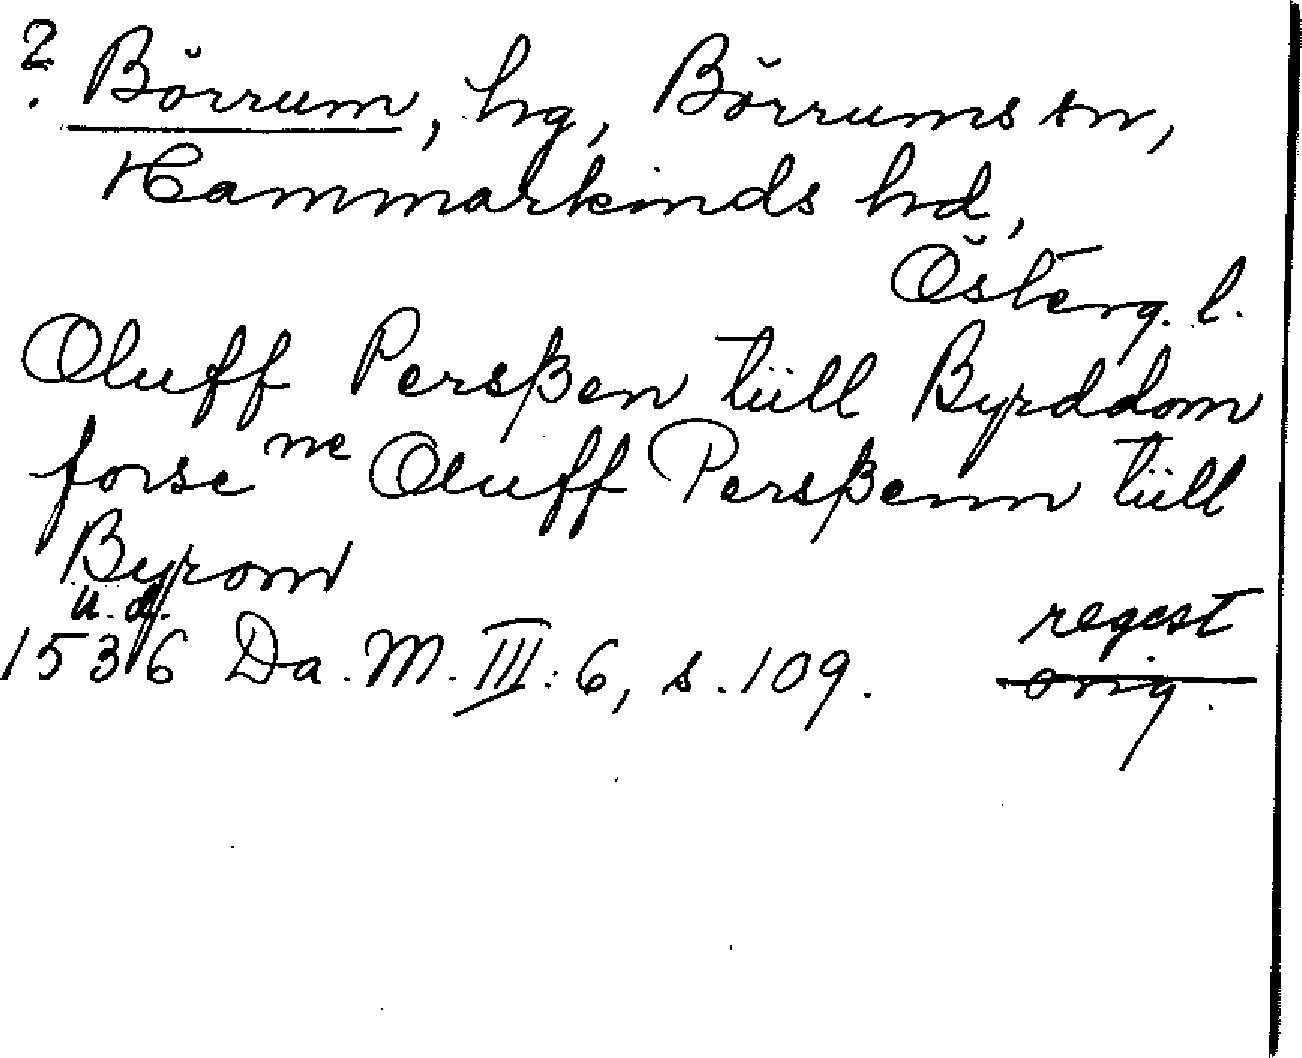 ? Börrum, hg, Börrums sn,
Hammarkinds hd,
Österg. l.
Oluff Persßen tüll Byrddom
forse ne Oluff Persßenn tüll
Byrom
u. d.
1536 Da. M. III: 6, s. 109. regest
orig.